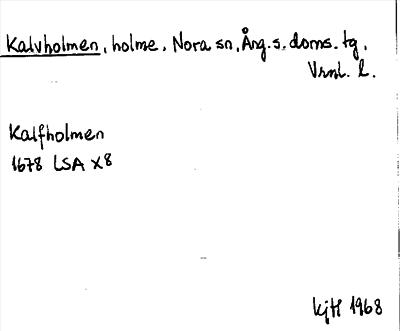 Kalvholmen, holme, Nora sn, Ång. s. doms. tg,
Vrnl. l.
Kalfholmen
1678 LSA X8
kjH 1968